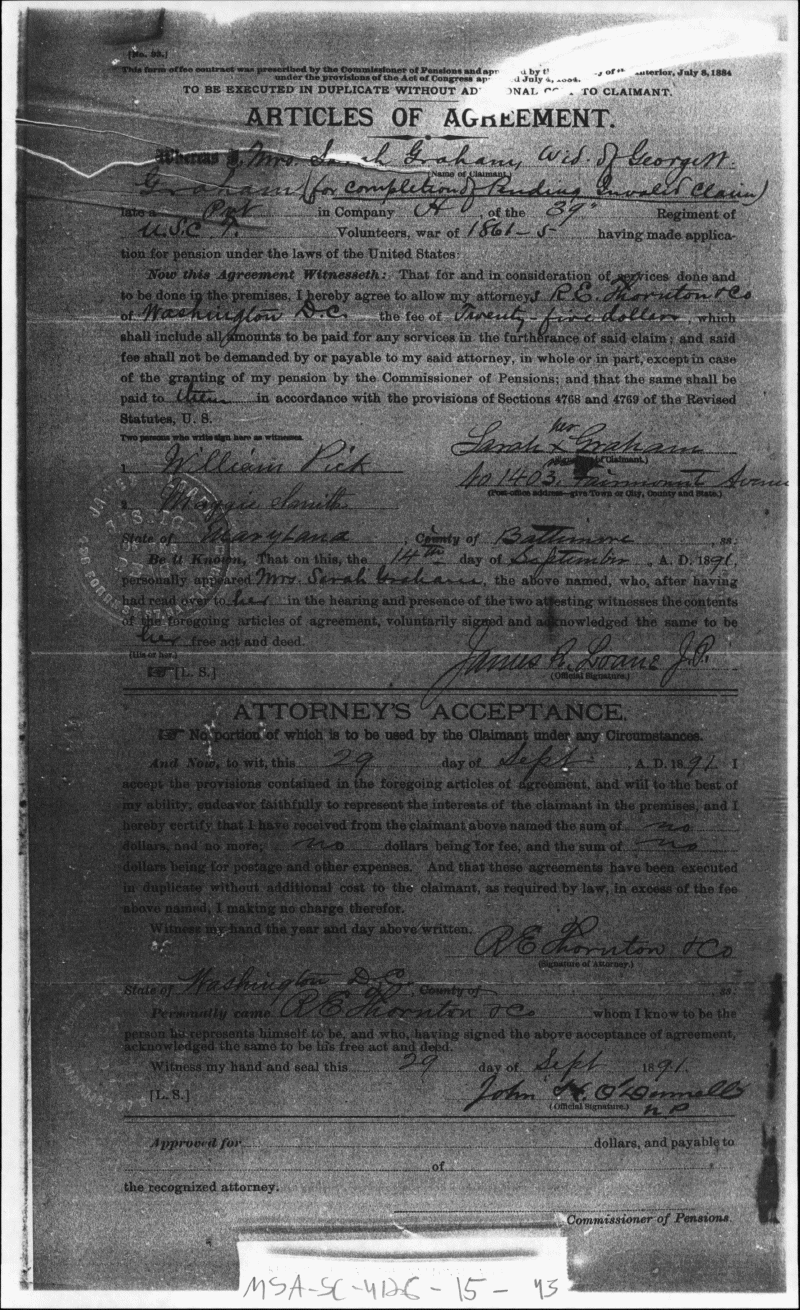 [No. 99.]
This form of fee contract was prescribed by the Commissioner of Pensions and app d by t y of th Interior, July 8, 1884
under the provisions of the Act of Congress ap d July 4, 1884.
TO BE EXECUTED IN DUPLICATE WITHOUT AD ONAL CO TO CLAIMANT.
ARTICLES OF AGREEMENT.
Whereas I, Mrs. Sarah Graham, Wid. of George W.
(Name of Claimant.)
Graham (for completion of Pending Invalid Claim)
late a Pvt in Company H, of the 39" Regiment of
U.S.C.T. Volunteers, war of 1861-5 having made applica-
tion for pension under the laws of the United States:
Now this Agreement Witnesseth: That for and in consideration of services done and
to be done in the premises, I hereby agree to allow my attorneys R E. Thornton & Co
of Washington D.C. the fee of Twenty-five dollars, which
shall include all amounts to be paid for any services in the furtherance of said claim; and said
fee shall not be demanded by or payable to my said attorney, in whole or in part, except in case
of the granting of my pension by the Commissioner of Pensions; and that the same shall be
paid to them in accordance with the provisions of Sections 4768 and 4769 of the Revised
Statutes, U. S.
Two persons who write sign here as witnesses.
her
Sarah x Graham
(Signature of Claimant.)
1 William Pick
No 1403 Fairmount Avenue
(Post-office address—give Town or City, County and State.)
2 Maggie Smith
State of Maryland, County of Baltimore, ss:
Be it Known, That on this, the 14th day of September, A. D. 1891,
personally appeared Mrs. Sarah Graham, the above named, who, after having
had read over to her in the hearing and presence of the two attesting witnesses the contents
of the foregoing articles of agreement, voluntarily signed and acknowledged the same to be
her free act and deed.
(His or her.)
James R. Loane J.P.
(Official Signature.)
[L. S.]
ATTORNEY'S ACCEPTANCE.
No portion of which is to be used by the Claimant under any Circumstances.
And Now, to wit, this 29 day of Sept, A. D. 1891 I
accept the provisions contained in the foregoing articles of agreement, and will to the best of
my ability, endeavor faithfully to represent the interests of the claimant in the premises, and I
hereby certify that I have received from the claimant above named the sum of no
dollars, and no more; no dollars being for fee, and the sum of no
dollars being for postage and other expenses. And that these agreements have been executed
in duplicate without additional cost to the claimant, as required by law, in excess of the fee
above named, I making no charge therefor.
Witness my hand the year and day above written.
R E Thornton & Co
(Signature of Attorney.)
State of Washington D.C., County of , ss:
Personally came R E Thornton & Co whom I know to be the
person he represents himself to be, and who, having signed the above acceptance of agreement,
acknowledged the same to be his free act and deed.
Witness my hand and seal this 29 day of Sept 1891.
[L. S.]
John H. O'Donnell
(Official Signature.) NP
Approved for dollars, and payable to
of
the recognized attorney.
Commissioner of Pensions.
MSA-SC-4126-15-43